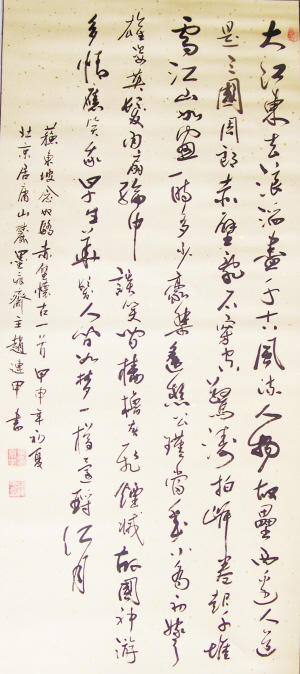 大江東去浪淘盡千古風流人物故壘西邊人道
是三國周郎赤壁亂石穿空驚濤拍岸卷起千堆
雪江山如畫一時多少豪傑遙想公瑾當年小喬初嫁了
雄姿英發羽扇綸巾談笑間檣櫓灰飛煙滅故國神游
多情應笑我早生華髮人間如夢一樽還酹江月
蘇東坡念奴嬌赤壁懷古一首 甲申年初夏
北京居庸山麓墨齋主趙連甲書